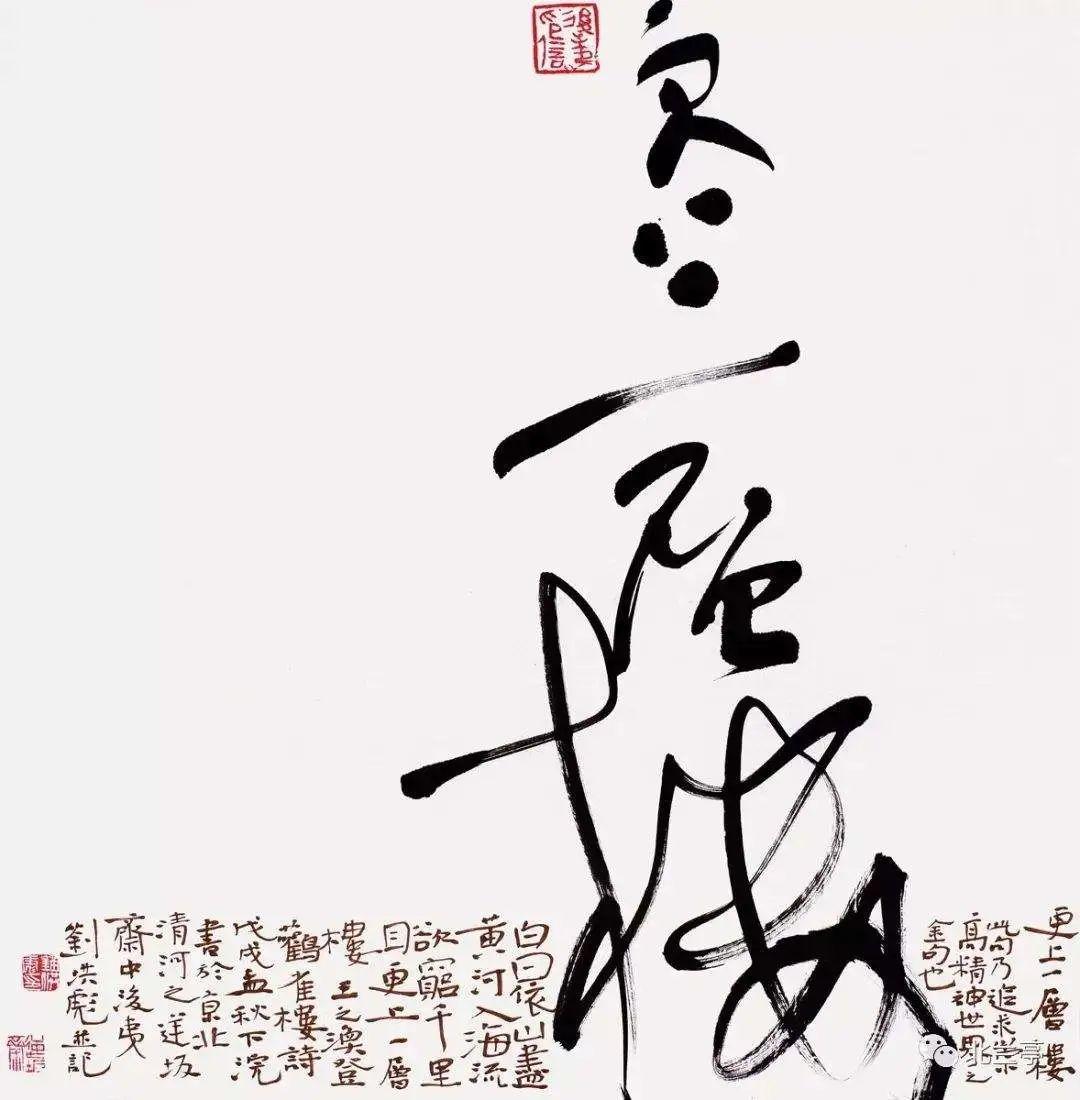 更上一層樓
此句乃追求崇
高精神世界之
金句也
更上一層樓
白日依山盡
黄河入海流
欲窮千里
目更上一層
樓 王之渙登
鸛雀樓詩
戊戌孟秋下浣
書於京北
清河之逆坂
齋中後夷
劉洪彪並記
北兰亭